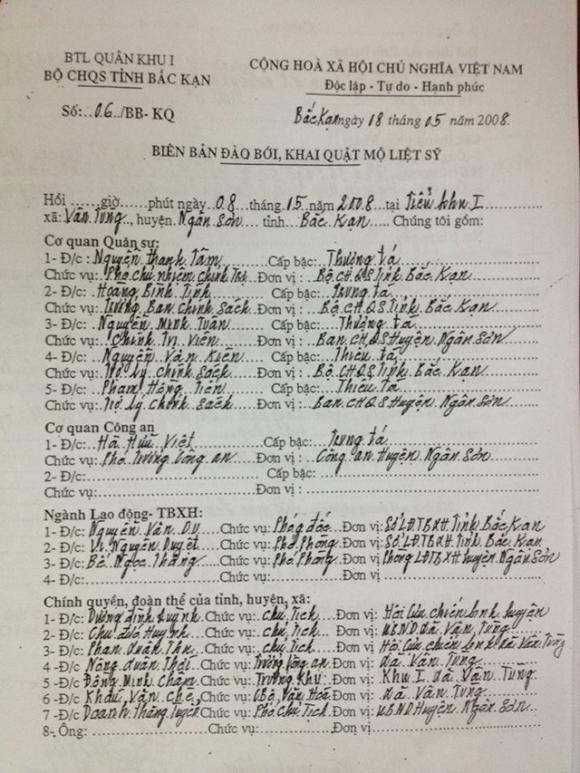 BTL QUÂN KHU I
BỘ CHQS TỈNH BẮC KẠN
CỘNG HOÀ XÃ HỘI CHỦ NGHĨA VIỆT NAM
Độc lập - Tự do - Hạnh phúc
Số:..06../BB- KQ
Bắc Kạn ngày 18 tháng 05 năm 2008.
BIÊN BẢN ĐÀO BỚI, KHAI QUẬT MỘ LIỆT SỸ
Hồi ......giờ......phút ngày .08...tháng.15.năm 2008...tại Tiểu khu I.
xã: Vân Tùng.., huyện: Ngân Sơn...tỉnh...Bắc Kạn..... Chúng tôi gồm:
Cơ quan Quân sự:
1- Đ/c: Nguyễn Thanh Tâm Cấp bậc: Thượng tá
Chức vụ: Phó chủ nhiệm Chính Trị Đơn vị : Bộ CHQS Tỉnh Bắc Kạn
2- Đ/c: Hoàng Bình Cấp bậc: Trung tá
Chức vụ: Trưởng Ban Chính sách Đơn vị : Bộ CHQS Tỉnh Bắc Kạn
3- Đ/c: Nguyễn Minh Tuân Cấp bậc: Thượng tá
Chức vụ: Chính Trị Viên Đơn vị : Ban CHQS Huyện Ngân Sơn
4- Đ/c: Nguyễn Văn Kiên Cấp bậc: Thiếu tá
Chức vụ: Trợ lý Chính sách Đơn vị : Bộ CHQS Tỉnh Bắc Kạn
5- Đ/c: Phạm Hồng Tiên Cấp bậc: Thiếu tá
Chức vụ: Trợ lý Chính sách Đơn vị : Ban CHQS Huyện Ngân Sơn
Cơ quan Công an
1- Đ/c: Hà Hữu Việt Cấp bậc: Trung tá
Chức vụ: Phó Trưởng Công an Đơn vị : Công an Huyện Ngân Sơn
2- Đ/c: Cấp bậc:
Chức vụ: Đơn vị :
Ngành Lao động- TBXH:
1- Đ/c: Nguyễn Văn Du Chức vụ: Phó g đốc Đơn vị: Sở LĐTBXH Tỉnh Bắc Kạn
2- Đ/c: Vi Nguyên Duyệt Chức vụ: Phó Phòng Đơn vị: Sở LĐTBXH Tỉnh Bắc Kạn
3- Đ/c: Bế Ngọc Thăng Chức vụ: Phó Phòng Đơn vị: Phòng LĐTBXH Huyện Ngân Sơn
4- Đ/c: Chức vụ: Đơn vị
Chính quyền, đoàn thể của tỉnh, huyện, xã:
1- Đ/c: Dương Đình Quỳnh Chức vụ: Chủ Tịch Đơn vị: Hội Cựu chiến binh huyện
2- Đ/c: Chu Đức Huỳnh Chức vụ: Chủ Tịch Đơn vị: UBND Xã Vân Tùng
3- Đ/c: Phan Xuân Thu Chức vụ: Chủ Tịch Đơn vị: Hội Cựu chiến binh xã Vân Tùng
4 -Đ/c Nông Xuân Thái Chức vụ: Trưởng Công an Đơn vị: Xã Vân Tùng
5 -Đ/c Đồng Minh Chức vụ: Trưởng Khu Đơn vị: Khu I Xã Vân Tùng
6 -Đ/c: Văn Chức vụ: Văn Hoá Đơn vị: Xã Vân Tùng
7 -Đ/c Doanh Thăng Tuyết Chức vụ: Phó Chủ Tịch Đơn vị: UBND Huyện Ngân Sơn
8- Ông: Chức vụ: Đơn vị: